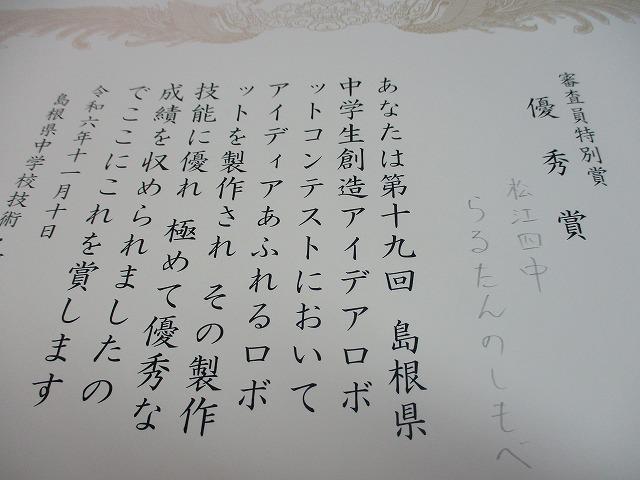 審査員特別賞
優秀賞
松江四中
らるたんのしもべ
あなたは第十九回 島根県
中学生創造アイデアロボ
ットコンテストにおいて
アイディアあふれるロボ
ットを製作され その製作
技能に優れ 極めて優秀な
成績を収められましたの
でここにこれを賞します
令和六年十一月十日
島根県中学校技術